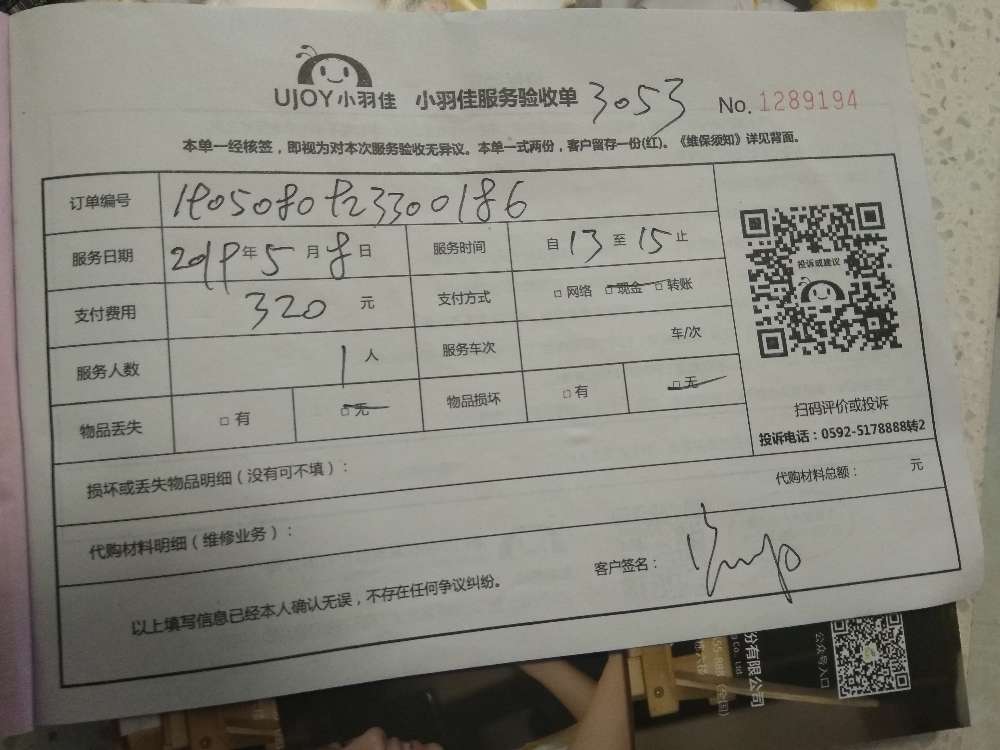 UJOY小羽佳 小羽佳服务验收单 3053 No. 1289194
本单一经核签，即视为对本次服务验收无异议。本单一式两份，客户留存一份(红)。《维保须知》详见背面。
订单编号 1905080923300186
服务日期 2019年5月8日 服务时间 自13至15止
支付费用 320元 支付方式 □网络 □现金 □转账
服务人数 1人 服务车次 车/次
物品丢失 □有 □无 物品损坏 □有 □无
投诉或建议
扫码评价或投诉
投诉电话：0592-5178888转2
损坏或丢失物品明细（没有可不填）：
代购材料明细（维修业务）： 代购材料总额： 元
以上填写信息已经本人确认无误，不存在任何争议纠纷。 客户签名：
份有限公司
公众号入口